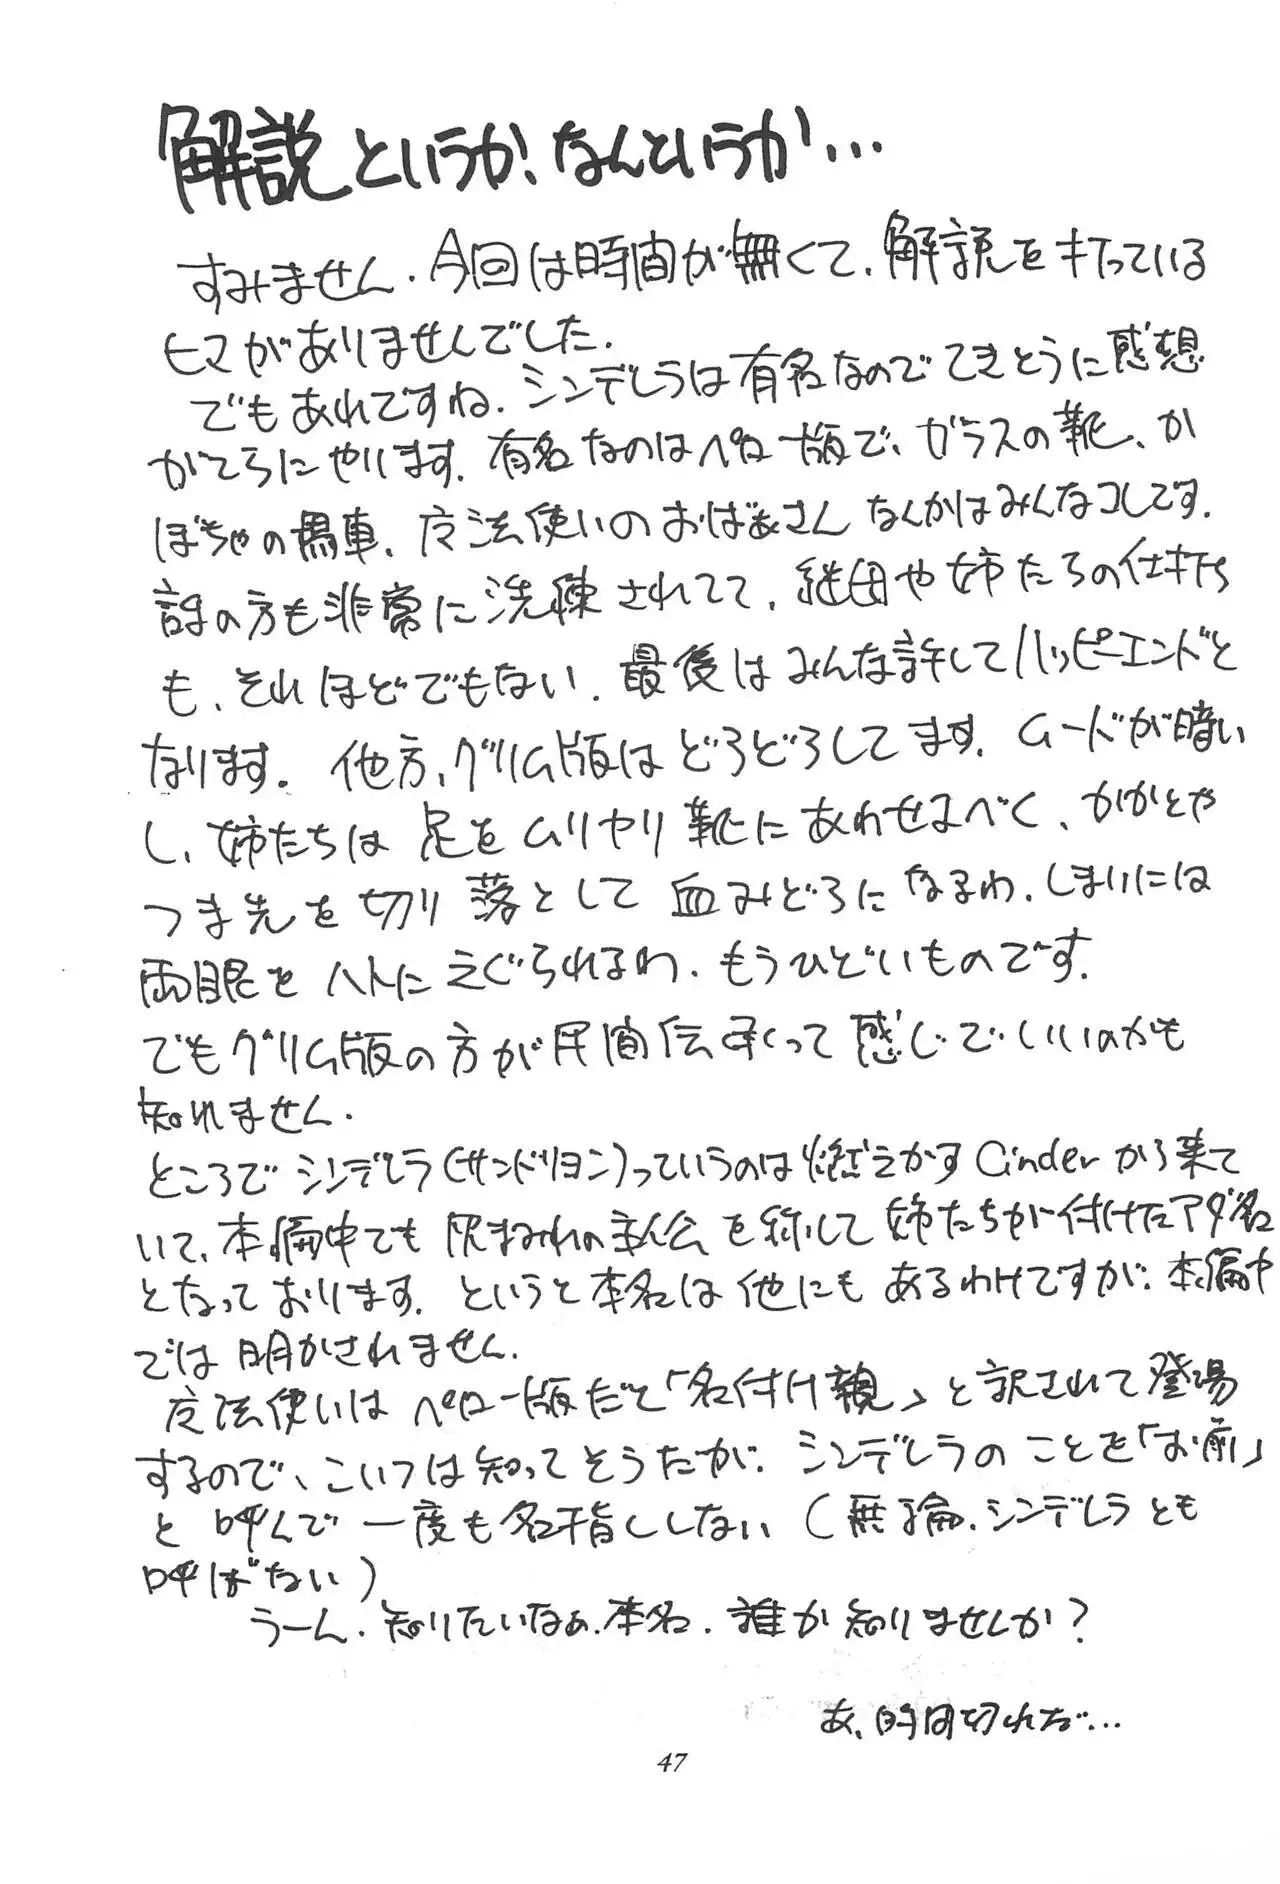 解説というか、なんというか…
すみません.今回は時間が無くて.解説を打っている
ヒマがありませんでした.
でもあれですね.シンデレラは有名なのでてきとうに感想
がてらにやります.有名なのはペロー版で、ガラスの靴、か
ぼちゃの馬車、魔法使いのおばあさんなんかはみんなコレです.
話の方も非常に洗練されてて、継母や姉たちの仕打ち
も、それほどでもない.最後はみんな許してハッピーエンドと
なります。他方、グリム版はどろどろしてます.ムードが暗い
し、姉たちは足をムリヤリ靴にあわせるべく、かかとや
つま先を切り落として血みどろになるわ.しまいには
両眼をハトにえぐられるわ.もうひどいものです.
でもグリム版の方が民間伝承って感じでいいのかも
知れません.
ところでシンデレラ(サンドリヨン)っていうのは燃えかすCinderから来て
いて、本編中でも灰まみれの主人公を称して姉たちが付けたアダ名
となっております.というと本名は他にもあるわけですが、本編中
では明かされません.
魔法使いはペロー版だと「名付け親」と訳されて登場
するので、こいつは知ってそうだが.シンデレラのことを「お前」
と呼んで一度も名指ししない(無論、シンデレラとも
呼ばない)
うーん.知りたいなぁ.本名.誰か知りませんか?
あ、時間切れだ…
47